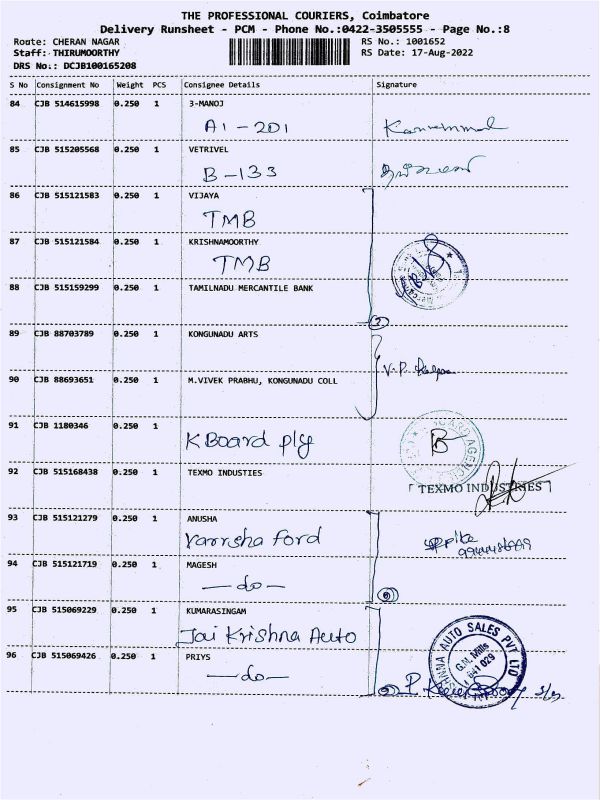 THE PROFESSIONAL COURIERS, Coimbatore
Delivery Runsheet - PCM - Phone No.:0422-3505555 - Page No.:8
Route: CHERAN NAGAR RS No.: 1001652
Staff: THIRUMOORTHY RS Date: 17-Aug-2022
DRS No.: DCJB100165208
S No Consignment No Weight PCS Consignee Details Signature
84 CJB 514615998 0.250 1 3-MANOJ
A1-201
85 CJB 515205568 0.250 1 VETRIVEL
B-133
86 CJB 515121583 0.250 1 VIJAYA
TMB
87 CJB 515121584 0.250 1 KRISHNAMOORTHY
TMB
88 CJB 515159299 0.250 1 TAMILNADU MERCANTILE BANK
89 CJB 88703789 0.250 1 KONGUNADU ARTS
V.P.
90 CJB 88693651 0.250 1 M.VIVEK PRABHU, KONGUNADU COLL
91 CJB 1180346 0.250 1
K Board ply
92 CJB 515168438 0.250 1 TEXMO INDUSTIES
TEXMO INDUSTRIES
93 CJB 515121279 0.250 1 ANUSHA
Varrsha Ford
94 CJB 515121719 0.250 1 MAGESH
—do—
95 CJB 515069229 0.250 1 KUMARASINGAM
Jai Krishna Auto
96 CJB 515069426 0.250 1 PRIYS
—do—
AUTO SALES PVT LTD
G.N. Mills
641 029